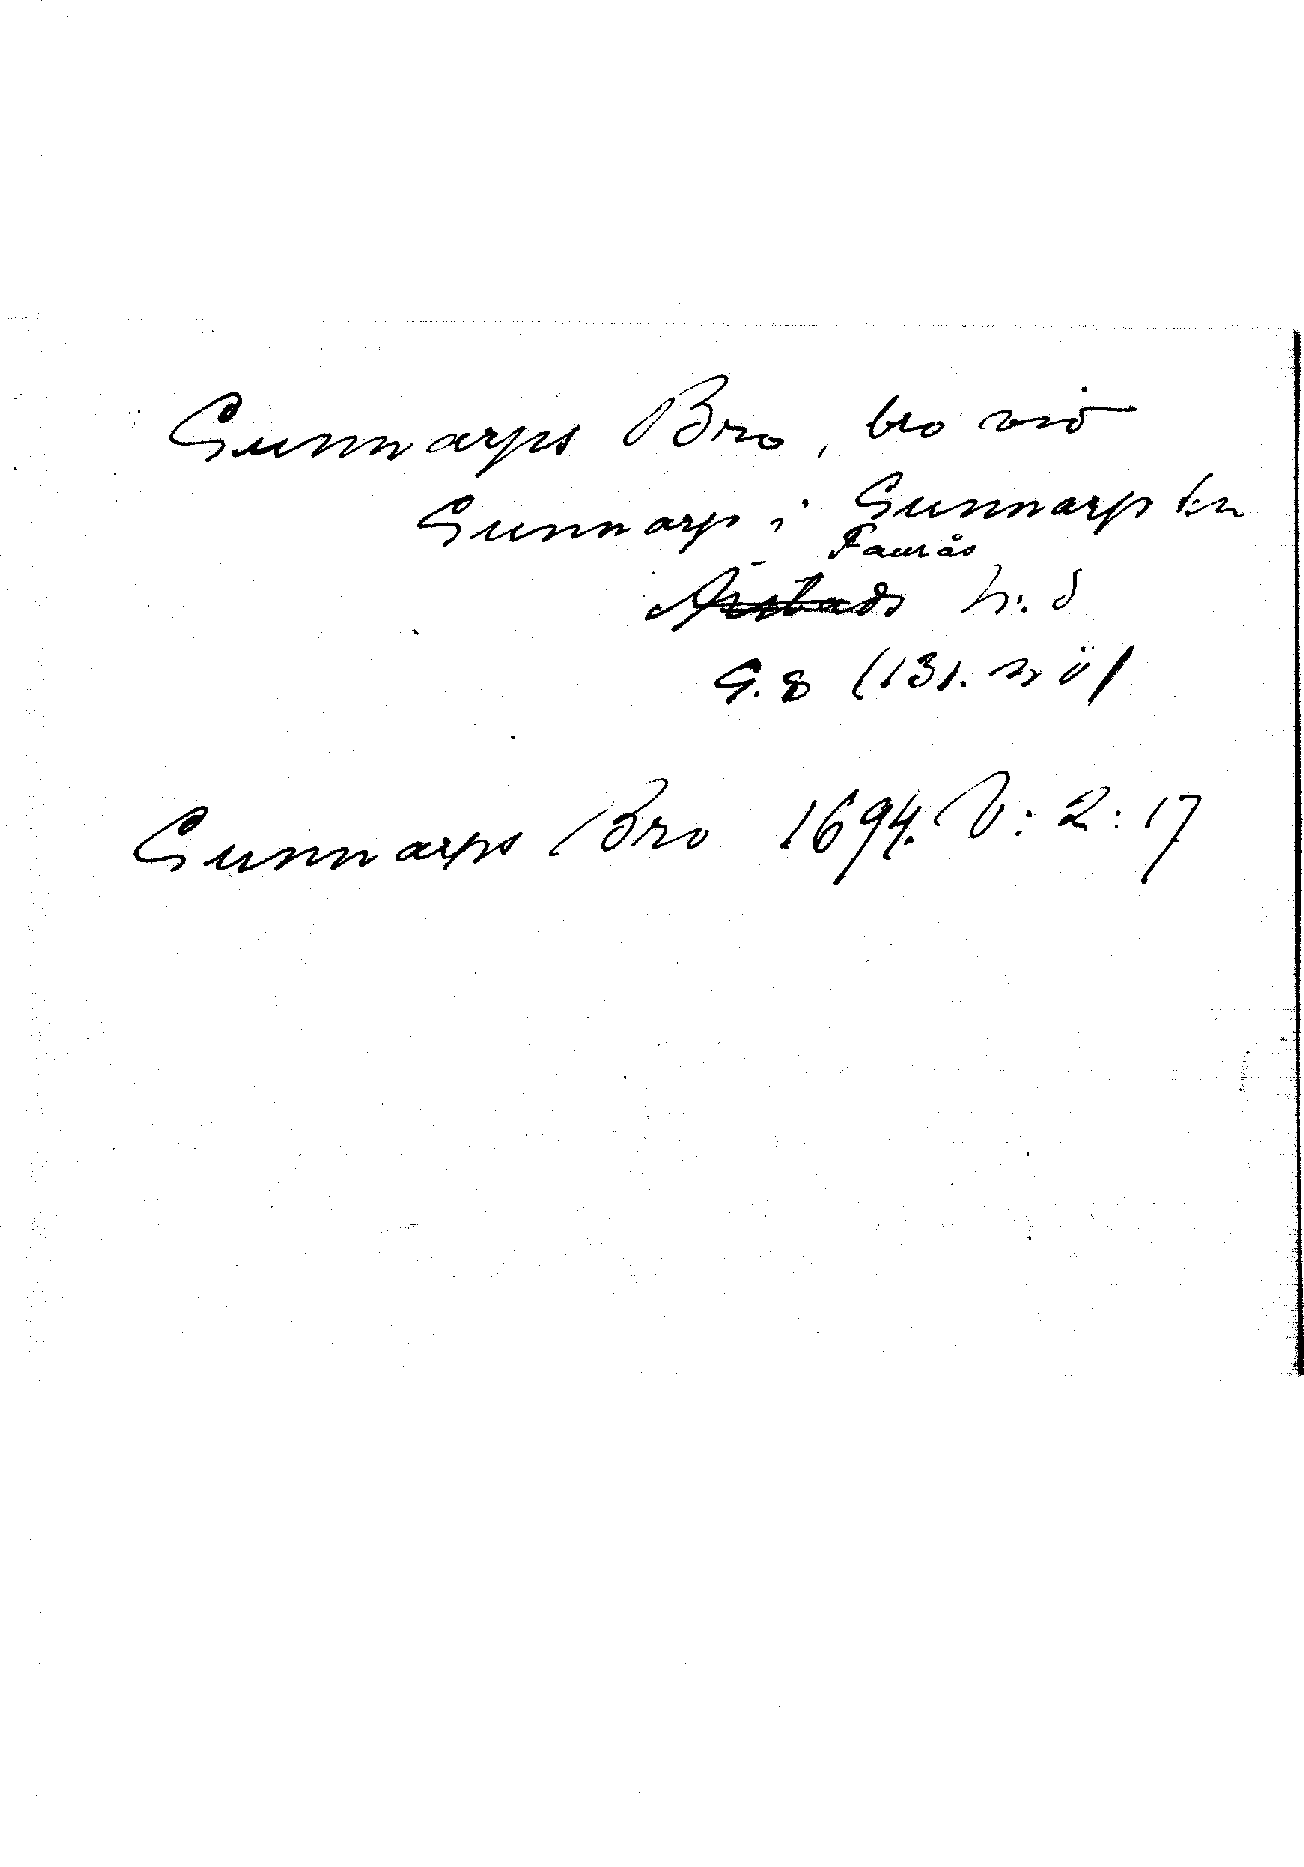 Gunnarps Bro, bro vid
Gunnarp i Gunnarp sn
Faurås
Årstads h.d
G.8 (131. n ö)
Gunnarps Bro 1694. V:2:17